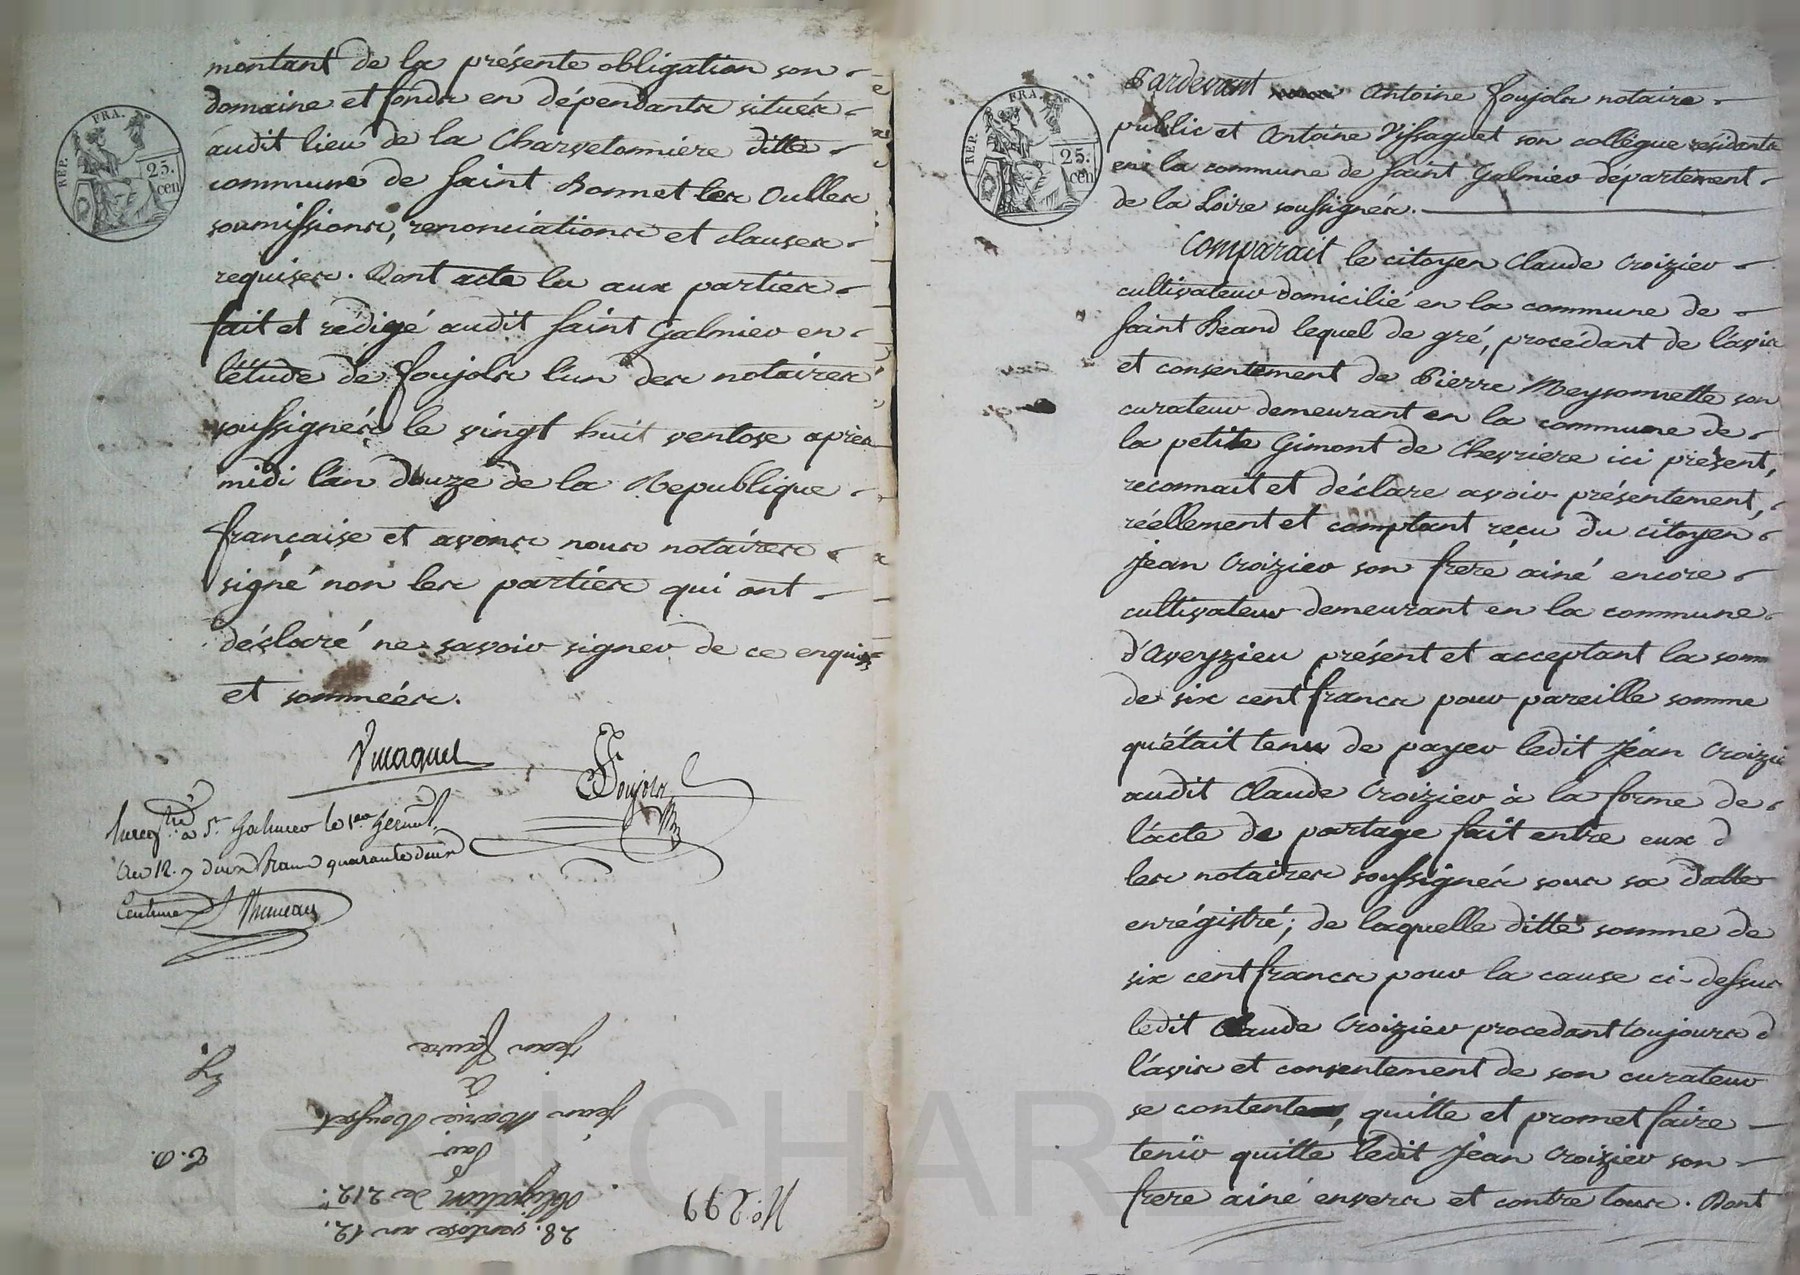 montant de la présente obligation son
domaine et fonds en dépendants situés
audit lieu de la Charvetonniere ditte
commune de Saint Bonnet les Oulles
soumissions, renonciations et clauses
requises. Dont acte lu aux parties
fait et redigé audit Saint Galmier en
l'étude de Foujols l'un des notaires
soussignés le vingt huit ventose après
midi l'an douze de la Republique
française et avons nous notaires
signé non les parties qui ont
déclaré ne savoir signer de ce enquis
et sommées.
Foujols
à St. Galmier le
an 12. deux francs quarante deux
centimes
28. ventose an 12.
Obligation de 212.
Par
Jean Marie
à
Jean Faure
No. 299
REP. FRA.
25. cen
REP. FRA.
25. cen
Pardevant Antoine Foujols notaire
public et Antoine son collègue résidants
en la commune de Saint Galmier departement
de la Loire soussignés.
Comparait le citoyen Claude Croizier
cultivateur domicilié en la commune de
Saint Heand lequel de gré, procédant de l'avis
et consentement de Pierre Meysonnette son
curateur demeurant en la commune de
la petite Gimont de Chevriere ici présent,
reconnait et déclare avoir présentement,
réellement et comptant reçu du citoyen
Jéan Croizier son frere ainé encore
cultivateur demeurant en la commune
d'Aveyzieu présent et acceptant la somme
de six cent francs pour pareille somme
qu'était tenu de payer ledit Jéan Croizier
audit Claude Croizier à la forme de
l'acte de partage fait entre eux d
les notaires soussignés sous sa datte
enrégistré; de laquelle ditte somme de
six cent francs pour la cause ci-dessus
ledit Claude Croizier procedant toujours d
l'avis et consentement de son curateur
se contente, quitte et promet faire
tenir quitte ledit Jéan Croizier son
frere ainé envers et contre tous. Dont
Pascal CHAREY